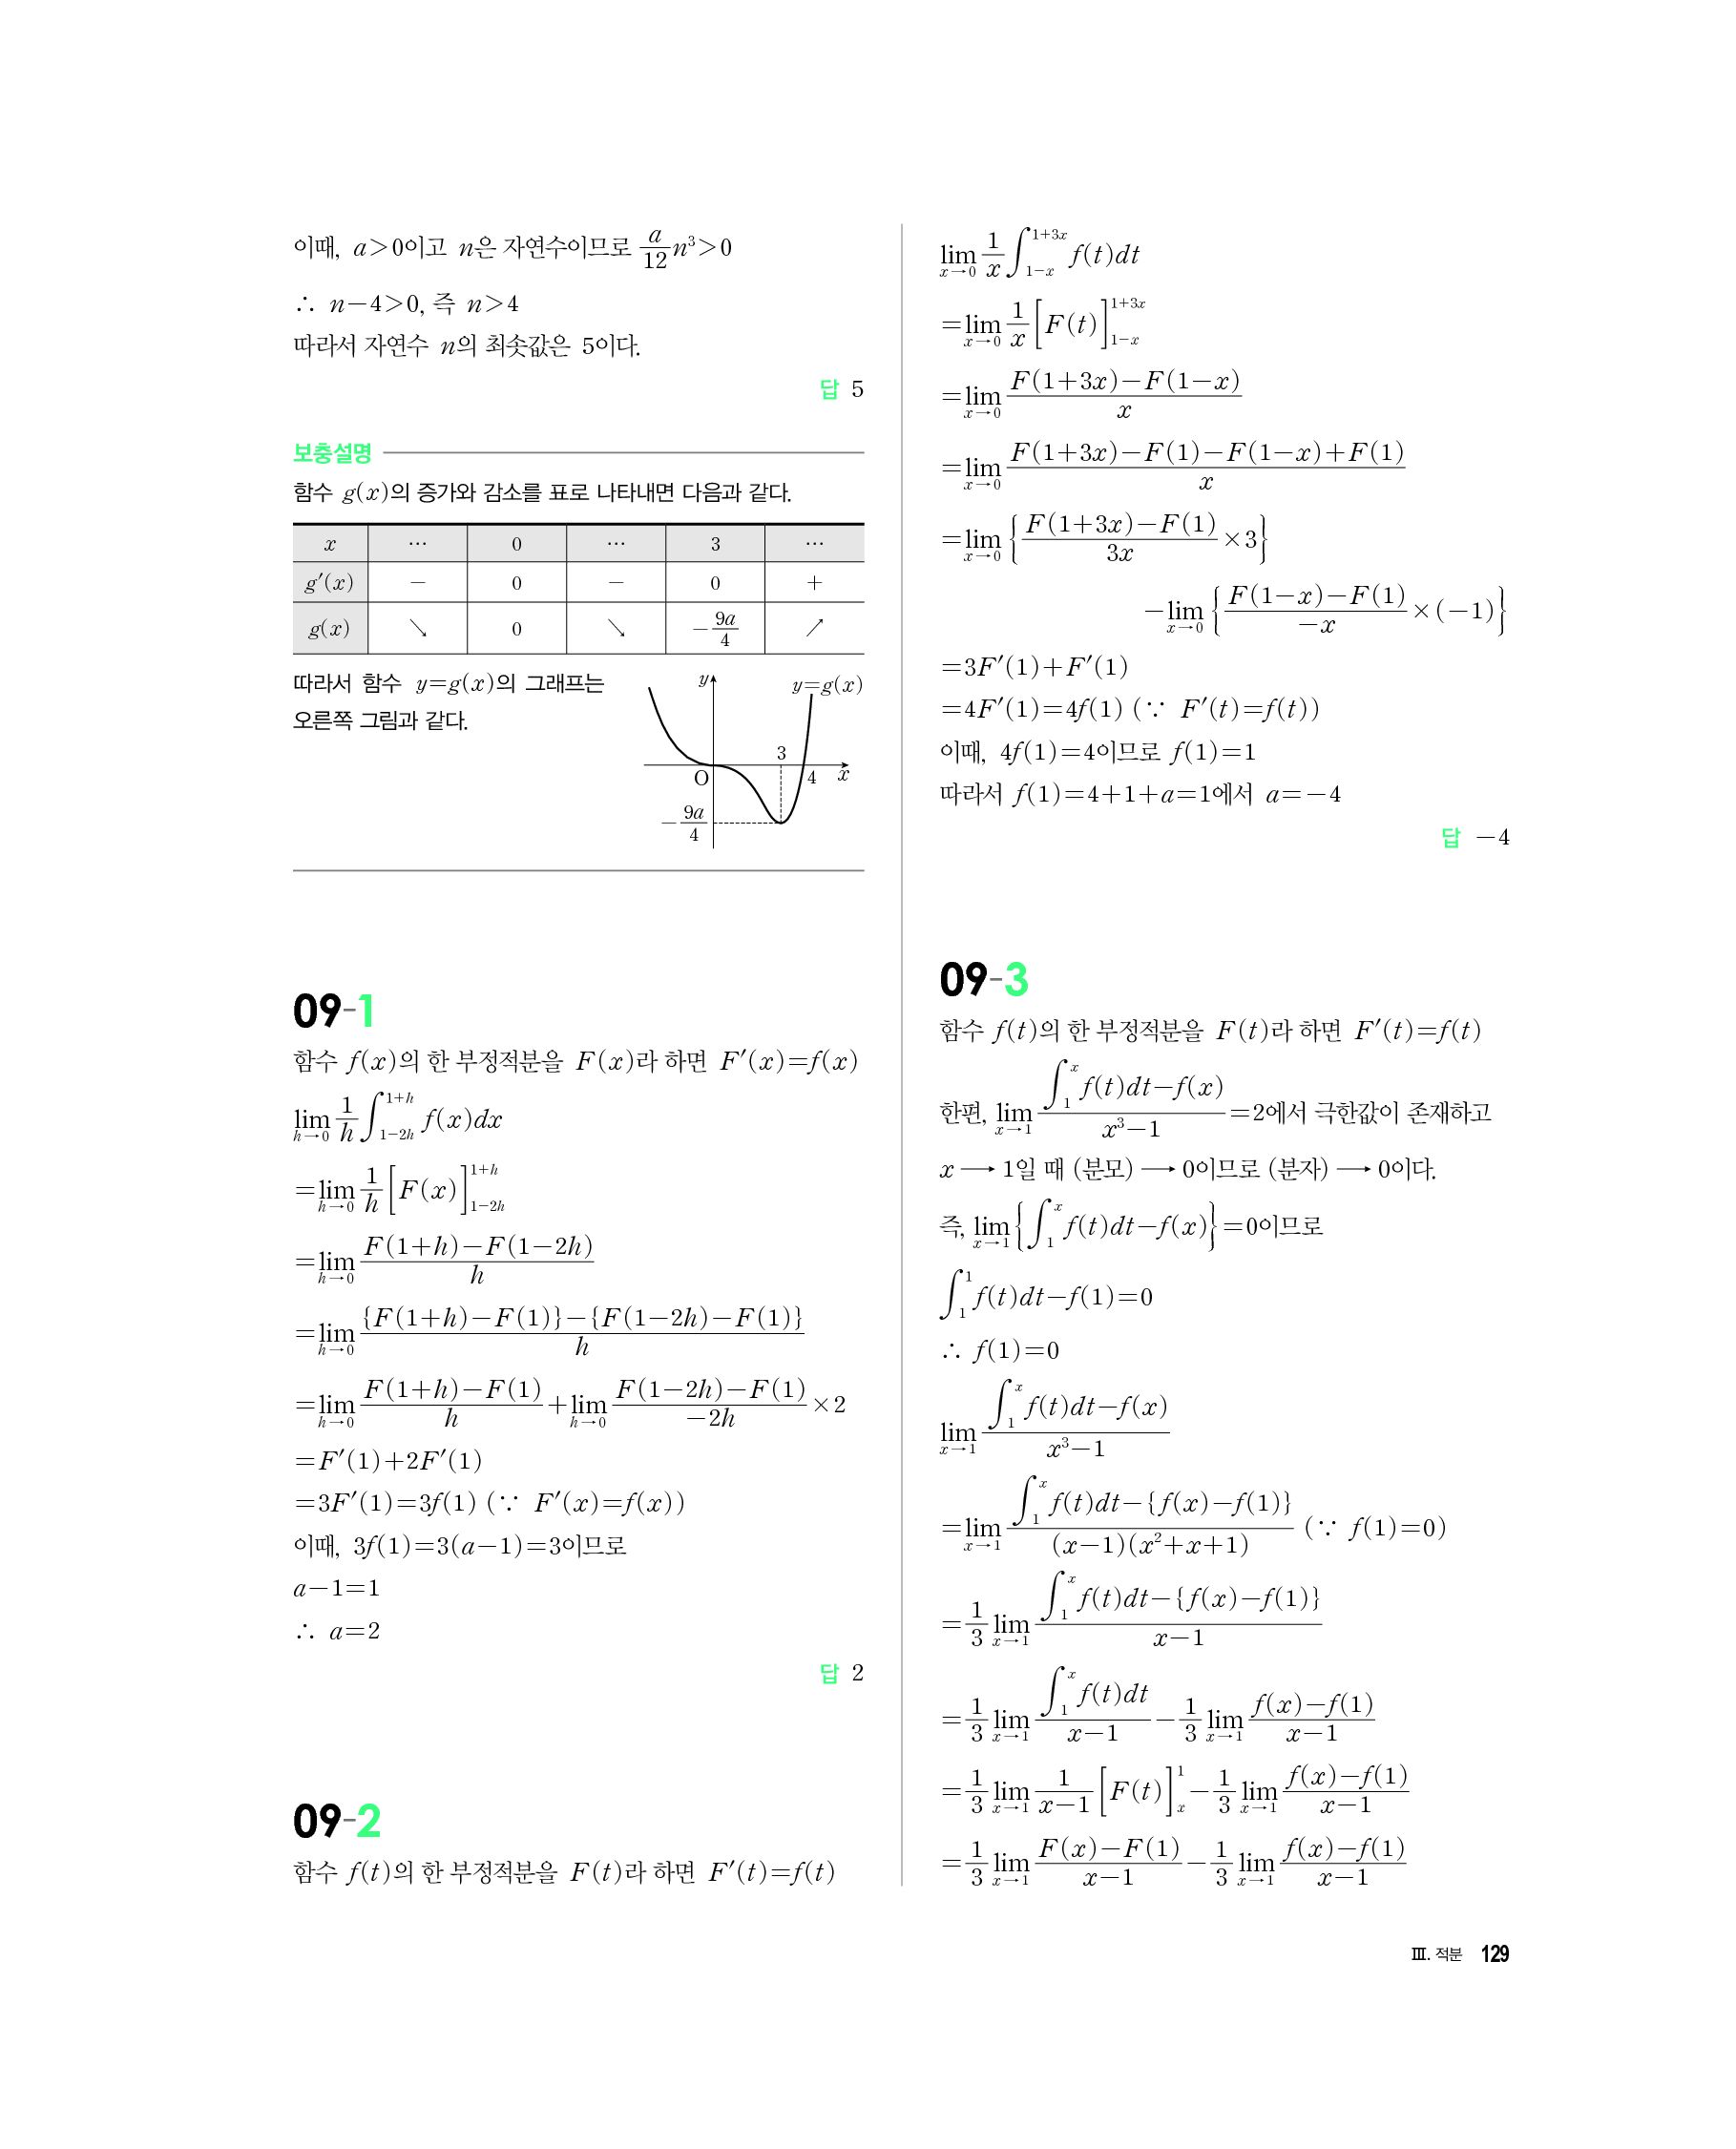 이때, a>0이고 n은 자연수이므로 a/12 n³>0
∴ n-4>0, 즉 n>4
따라서 자연수 n의 최솟값은 5이다.
답 5
보충설명
함수 g(x)의 증가와 감소를 표로 나타내면 다음과 같다.
x ⋯ 0 ⋯ 3 ⋯
g′(x) - 0 - 0 +
g(x) ↘ 0 ↘ -9a/4 ↗
따라서 함수 y=g(x)의 그래프는
오른쪽 그림과 같다.
y
y=g(x)
3
O
4
x
-9a/4
09-1
함수 f(x)의 한 부정적분을 F(x)라 하면 F′(x)=f(x)
lim_{h→0} 1/h ∫_{1-2h}^{1+h} f(x)dx
=lim_{h→0} 1/h [F(x)]_{1-2h}^{1+h}
=lim_{h→0} {F(1+h)-F(1-2h)}/h
=lim_{h→0} [{F(1+h)-F(1)}-{F(1-2h)-F(1)}]/h
=lim_{h→0} {F(1+h)-F(1)}/h+lim_{h→0} {F(1-2h)-F(1)}/(-2h)×2
=F′(1)+2F′(1)
=3F′(1)=3f(1) (∵ F′(x)=f(x))
이때, 3f(1)=3(a-1)=3이므로
a-1=1
∴ a=2
답 2
09-2
함수 f(t)의 한 부정적분을 F(t)라 하면 F′(t)=f(t)
lim_{x→0} 1/x ∫_{1-x}^{1+3x} f(t)dt
=lim_{x→0} 1/x [F(t)]_{1-x}^{1+3x}
=lim_{x→0} {F(1+3x)-F(1-x)}/x
=lim_{x→0} {F(1+3x)-F(1)-F(1-x)+F(1)}/x
=lim_{x→0} {(F(1+3x)-F(1))/3x×3}
-lim_{x→0} {(F(1-x)-F(1))/(-x)×(-1)}
=3F′(1)+F′(1)
=4F′(1)=4f(1) (∵ F′(t)=f(t))
이때, 4f(1)=4이므로 f(1)=1
따라서 f(1)=4+1+a=1에서 a=-4
답 -4
09-3
함수 f(t)의 한 부정적분을 F(t)라 하면 F′(t)=f(t)
한편, lim_{x→1} (∫_1^x f(t)dt-f(x))/(x³-1)=2에서 극한값이 존재하고
x ⟶ 1일 때 (분모) ⟶ 0이므로 (분자) ⟶ 0이다.
즉, lim_{x→1} {∫_1^x f(t)dt-f(x)}=0이므로
∫_1^1 f(t)dt-f(1)=0
∴ f(1)=0
lim_{x→1} (∫_1^x f(t)dt-f(x))/(x³-1)
=lim_{x→1} (∫_1^x f(t)dt-{f(x)-f(1)})/((x-1)(x²+x+1)) (∵ f(1)=0)
=1/3 lim_{x→1} (∫_1^x f(t)dt-{f(x)-f(1)})/(x-1)
=1/3 lim_{x→1} (∫_1^x f(t)dt)/(x-1)-1/3 lim_{x→1} (f(x)-f(1))/(x-1)
=1/3 lim_{x→1} 1/(x-1) [F(t)]_x^1-1/3 lim_{x→1} (f(x)-f(1))/(x-1)
=1/3 lim_{x→1} (F(x)-F(1))/(x-1)-1/3 lim_{x→1} (f(x)-f(1))/(x-1)
Ⅲ. 적분 129